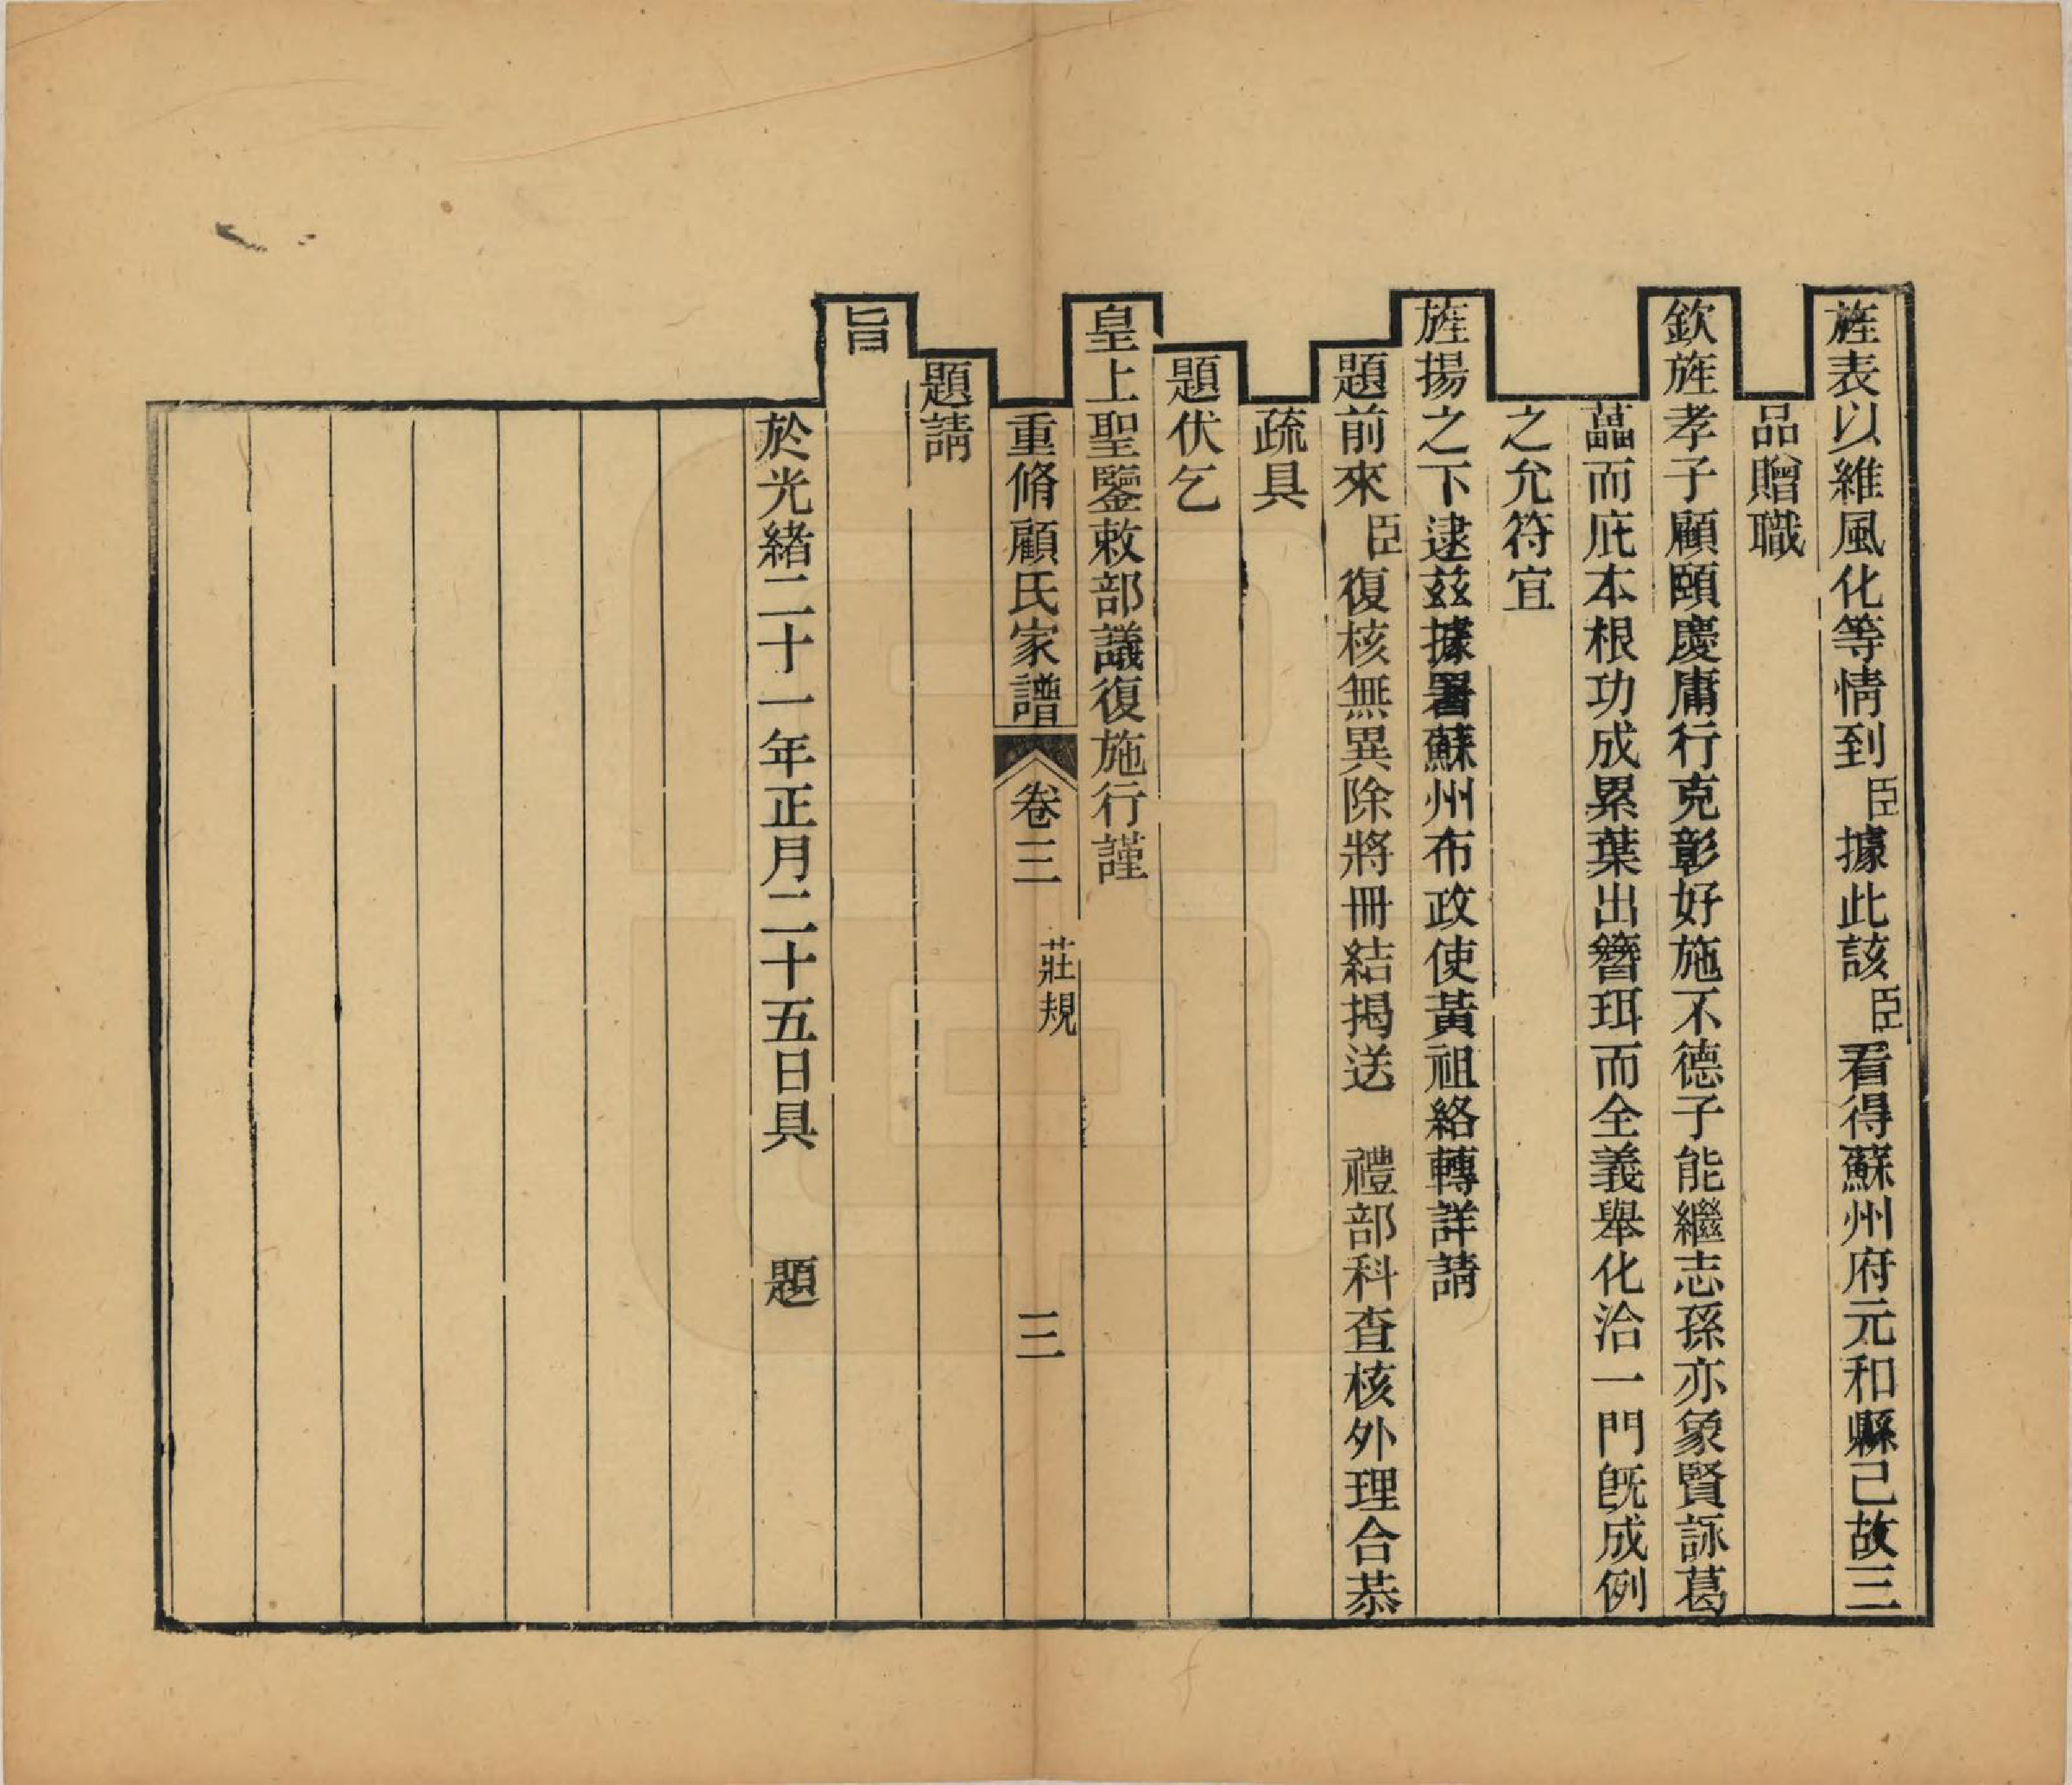 旌表以維風化等情到臣據此該臣看得蘇州府元和縣己故三
品贈職
欽旌孝子顧頤慶庸行克彰好施不德子能繼志孫亦象賢詠葛
藟而庇本根功成累葉出簪珥而全義舉化洽一門旣成例
之允符宜
旌揚之下逮茲據署蘇州布政使黃祖絡轉詳請
題前來臣復核無異除將冊結揭送 禮部科查核外理合恭
疏具
題伏乞
皇上聖鑒敕部議復施行謹
重脩顧氏家譜 卷三 莊規 三
題請
旨
於光緒二十一年正月二十五日具 題